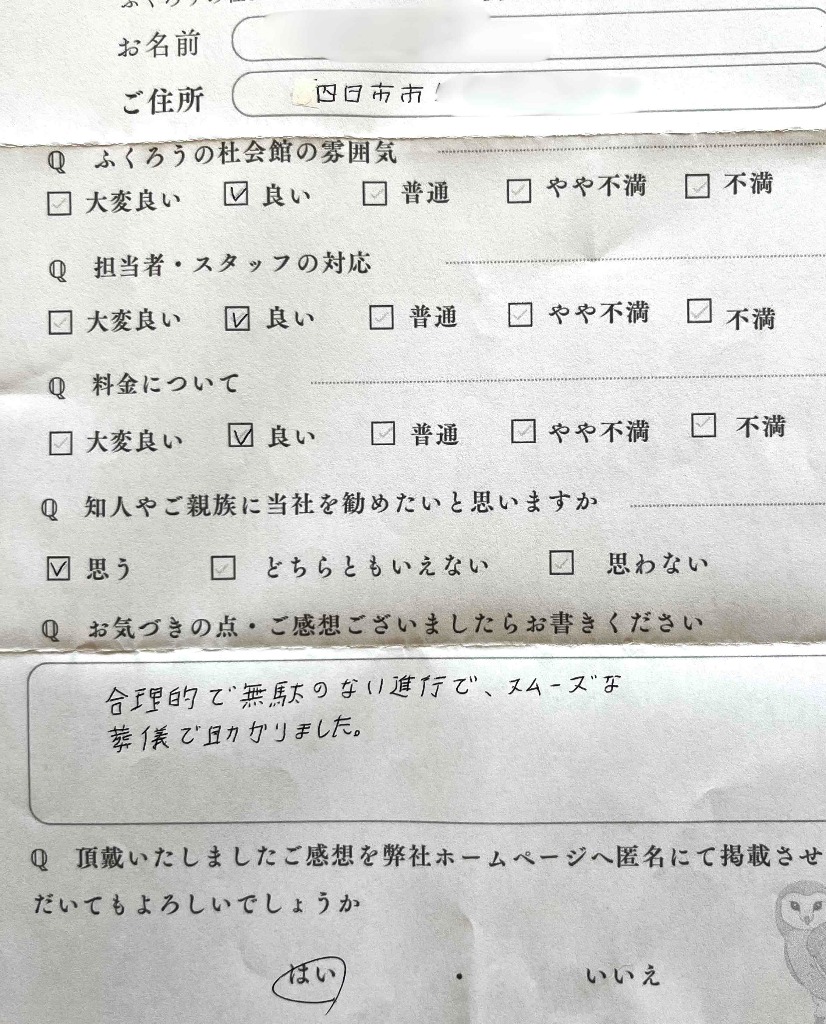 お名前
ご住所 四日市市
Q ふくろうの杜会館の雰囲気
大変良い 良い 普通 やや不満 不満
Q 担当者・スタッフの対応
大変良い 良い 普通 やや不満 不満
Q 料金について
大変良い 良い 普通 やや不満 不満
Q 知人やご親族に当社を勧めたいと思いますか
思う どちらともいえない 思わない
Q お気づきの点・ご感想ございましたらお書きください
合理的で無駄のない進行で、スムーズな
葬儀で助かりました。
Q 頂戴いたしましたご感想を弊社ホームページへ匿名にて掲載させ
だいてもよろしいでしょうか
はい ・ いいえ